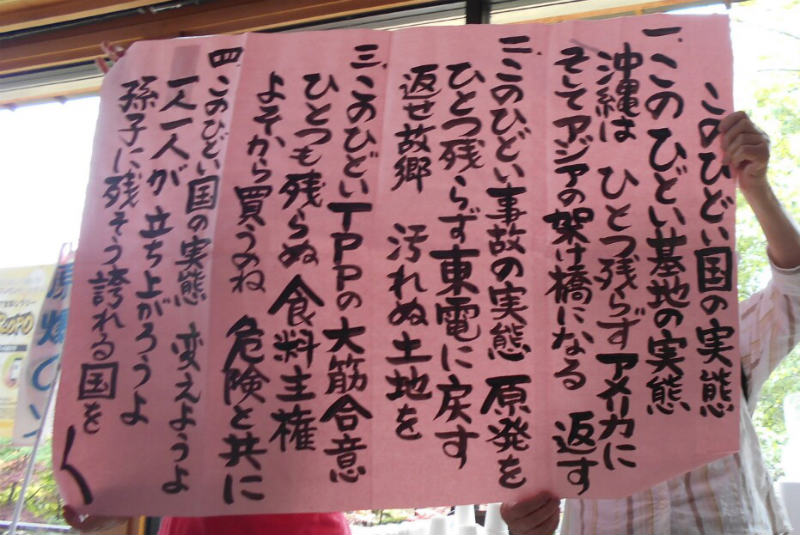 このひどい国の実態
一、このひどい基地の実態
沖縄は ひとつ残らずアメリカに 返す
そしてアジアの架け橋になる
二、このひどい事故の実態 原発を
ひとつ残らず東電に戻す
返せ故郷 汚れぬ土地を
三、このひどいTPPの大筋合意
ひとつも残らぬ食料主権
よそから買うのね 危険と共に
四、このひどい国の実態 変えようよ
一人一人が立ち上がろうよ
孫子に残そう誇れる国を